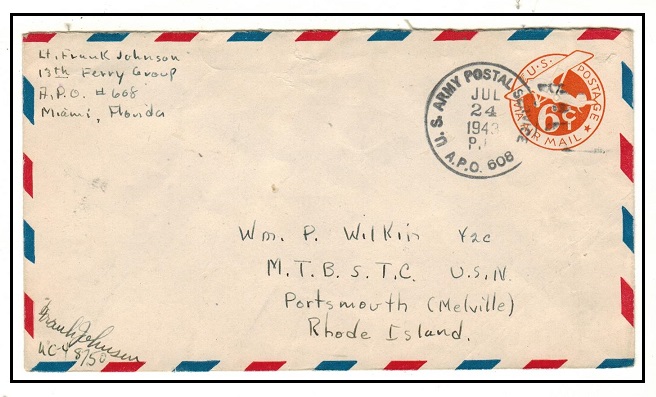 Lt. Frank Johnson
13th Ferry Group
A.P.O. # 608
Miami, Florida
U.S. ARMY POSTAL SERVICE
JUL
24
1943
P.
A.P.O. 608
U.S. POSTAGE
VIA AIR MAIL
6¢
Wm. P. Wilkin Y2c
M.T.B.S.T.C. U.S.N.
Portsmouth (Melville)
Rhode Island.
Frank Johnson